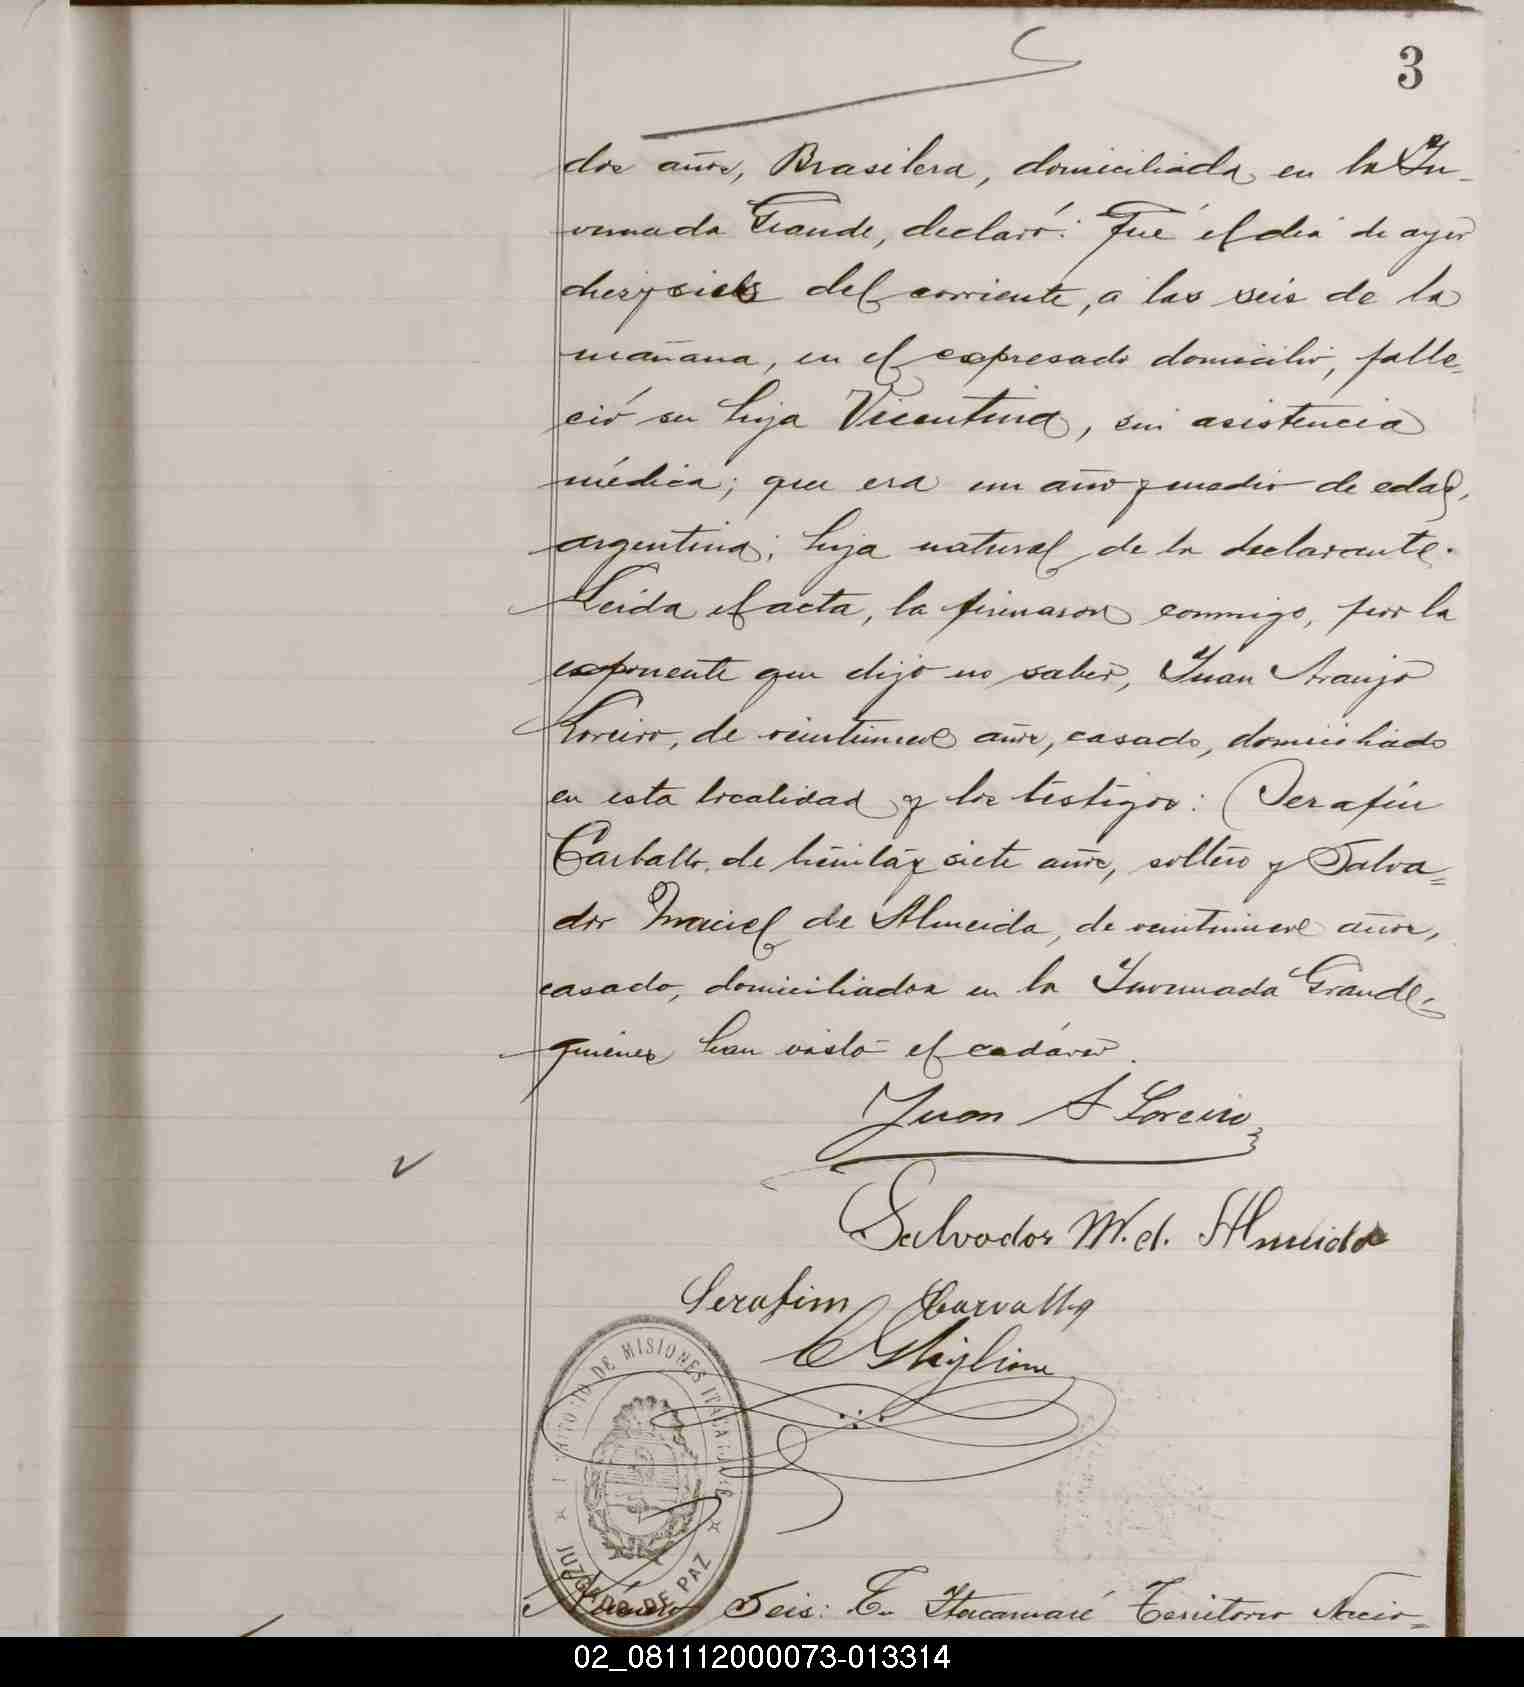 3
dos años, Brasilera, domiciliada en la In-
vernada Grande, declaró: Fué el dia de ayer
diez y siete del corriente, a las seis de la
mañana, en el expresado domicilio, falle=
ció su hija Vicentina, sin asistencia
médica; que era un año y medio de edad,
argentina; hija natural de la declarante.
Leida el acta, la firmaron conmigo, por la
exponente que dijo no saber, Juan Araujo
Loreiro, de veintinueve años, casado, domiciliado
en esta localidad y los testigos: Serafin
Carballo, de treinta y siete años, soltero y Salva=
dor Maciel de Almeida, de veintinueve años,
casado, domiciliados en la Invernada Grande,
quienes han visto el cadáver.
Juan A Loreiro
Salvador M. d. Almeida
Serafim Carvallo
C Ghiglione
TERRITORIO DE MISIONES ITACARUARE
JUZGADO DE PAZ
Número Seis: En Itacaruaré Territorio Nacio=
02_081112000073-013314